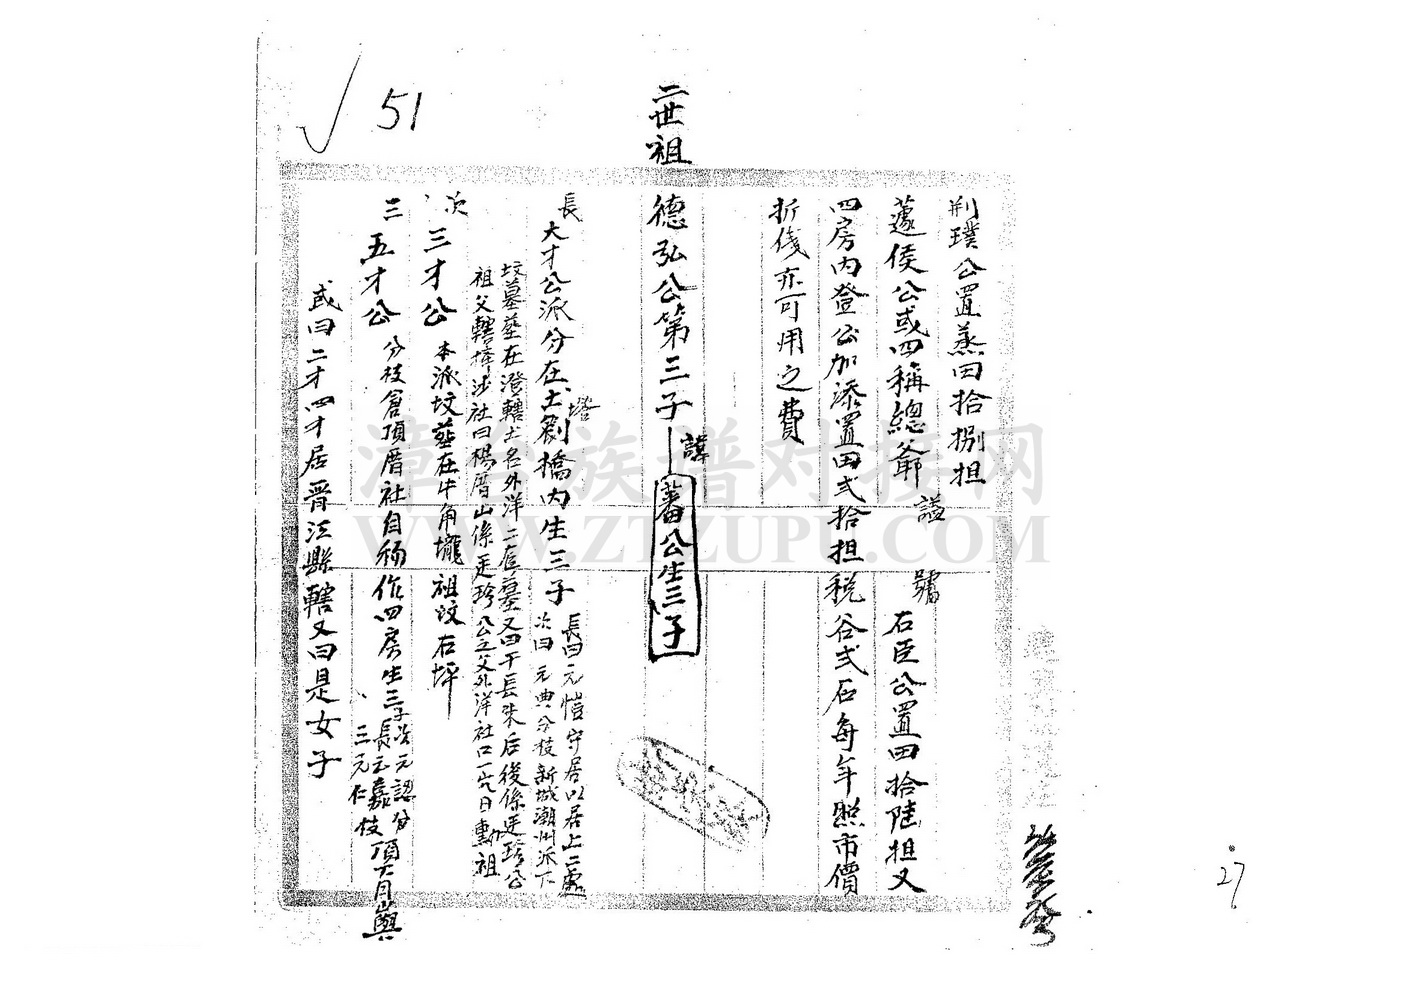 荆璞公置蒸田拾捌担
薳侯公或四稱總爺 謚 號 右臣公置田拾陸担又
四房内登公加添置田弍拾担税谷弍石每年照市價
折伐亦可用之費
二世祖
德弘公第三子 諱 蕃公生三子
長 大才公派分在土劉橋内生三子
塔
長曰元愷守居以居上二處
次曰元典分枝新城潮州派下
坟墓葬在澄轄土名外洋二座墓又四干長珠后後係廷珍公
祖父轄埁沙社曰楊厝山係廷珍公之父外洋社口一穴曰勳祖
次 三才公 本派坟葬在牛角壠祖坟右坪
三 五才公 分枝倉頂厝社自称作四房生三子
長元嘉
次元認分枝頂
三元仁
或曰二才四才居晋江縣轄又曰是女子
51
27
漳台族谱对接网
WWW.ZTZUPU.COM